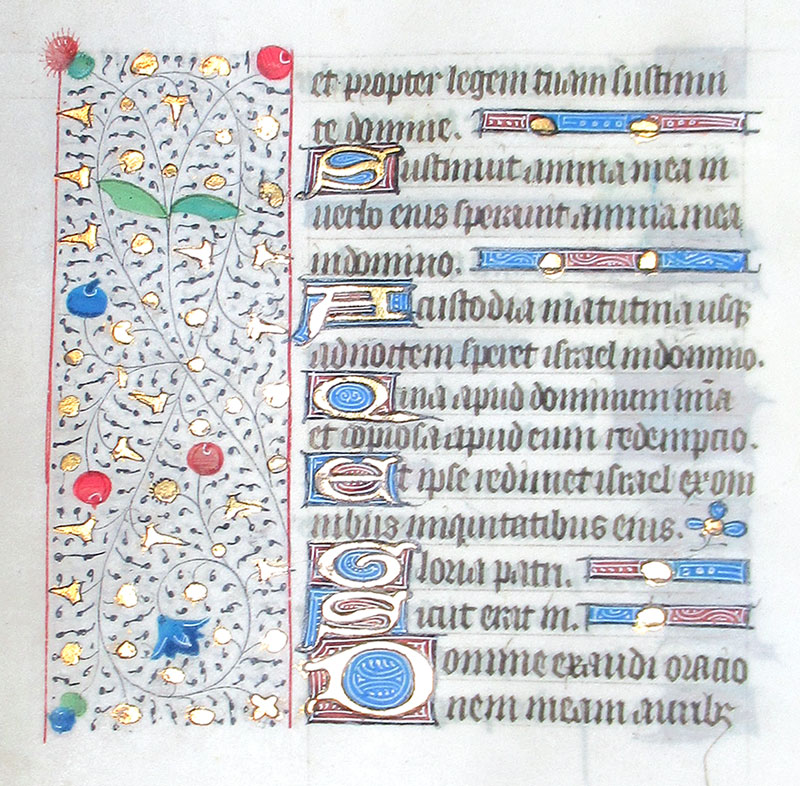 et propter legem tuam sustinui
te domine.
Sustinuit anima mea in
verbo eius speravit anima mea
in domino.
A custodia matutina usq
ad noctem speret israel in domino.
Quia apud dominum mia
et copiosa apud eum redemptio.
Et ipse redimet israel ex om
nibus iniquitatibus eius.
Gloria patri.
Sicut erat in.
Domine exaudi oratio
nem meam auribs